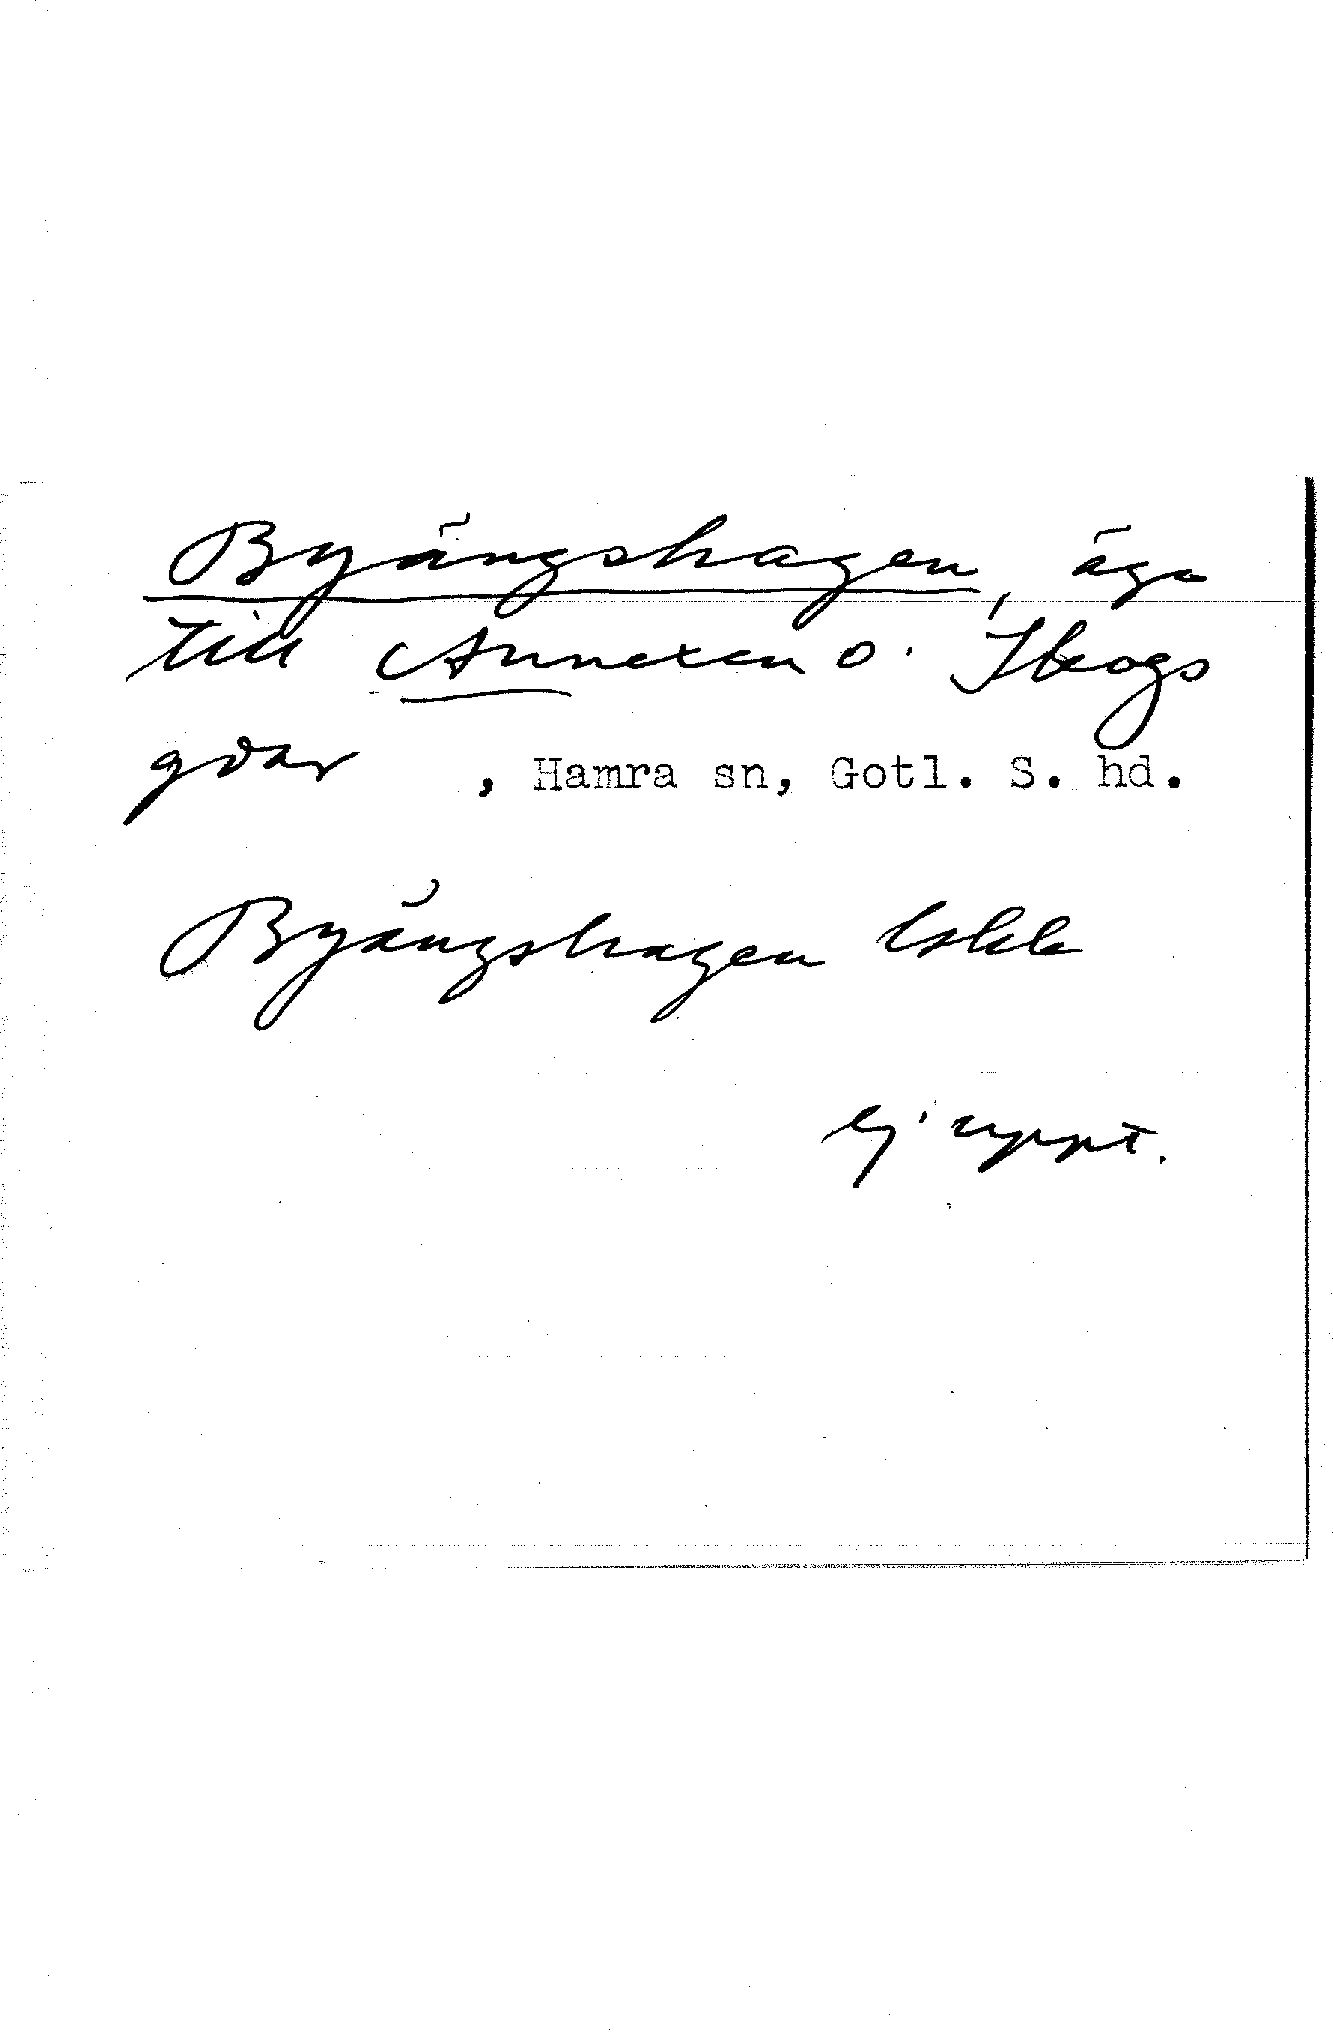 Byängshagen, äga
till Annexen o. Skogs
gdar, Hamra sn, Gotl. S. hd.
Byängshagen
ej uppt.